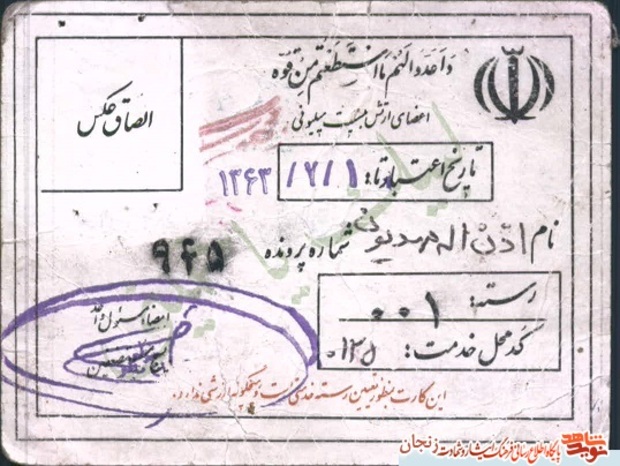 وَاَعِدّوا لَهُم مَا اسْتَطَعْتُم مِن قُوَّه
اعضای ارتش بیست میلیونی
الصاق عکس
تاریخ اعتبار تا: ۱۳۶۳/۲/۱
نام اذن اله
شماره پرونده ۹۶۵
رسته: ۰۰۱
کد محل خدمت: ۰۱۲۵
امضاء مسئول واحد
این کارت بمنظور تعیین رسته خدمتی است و هیچگونه ارزشی ندارد.
نوید شاهد
پایگاه اطلاع رسانی فرهنگ ایثار و شهادت زنجان